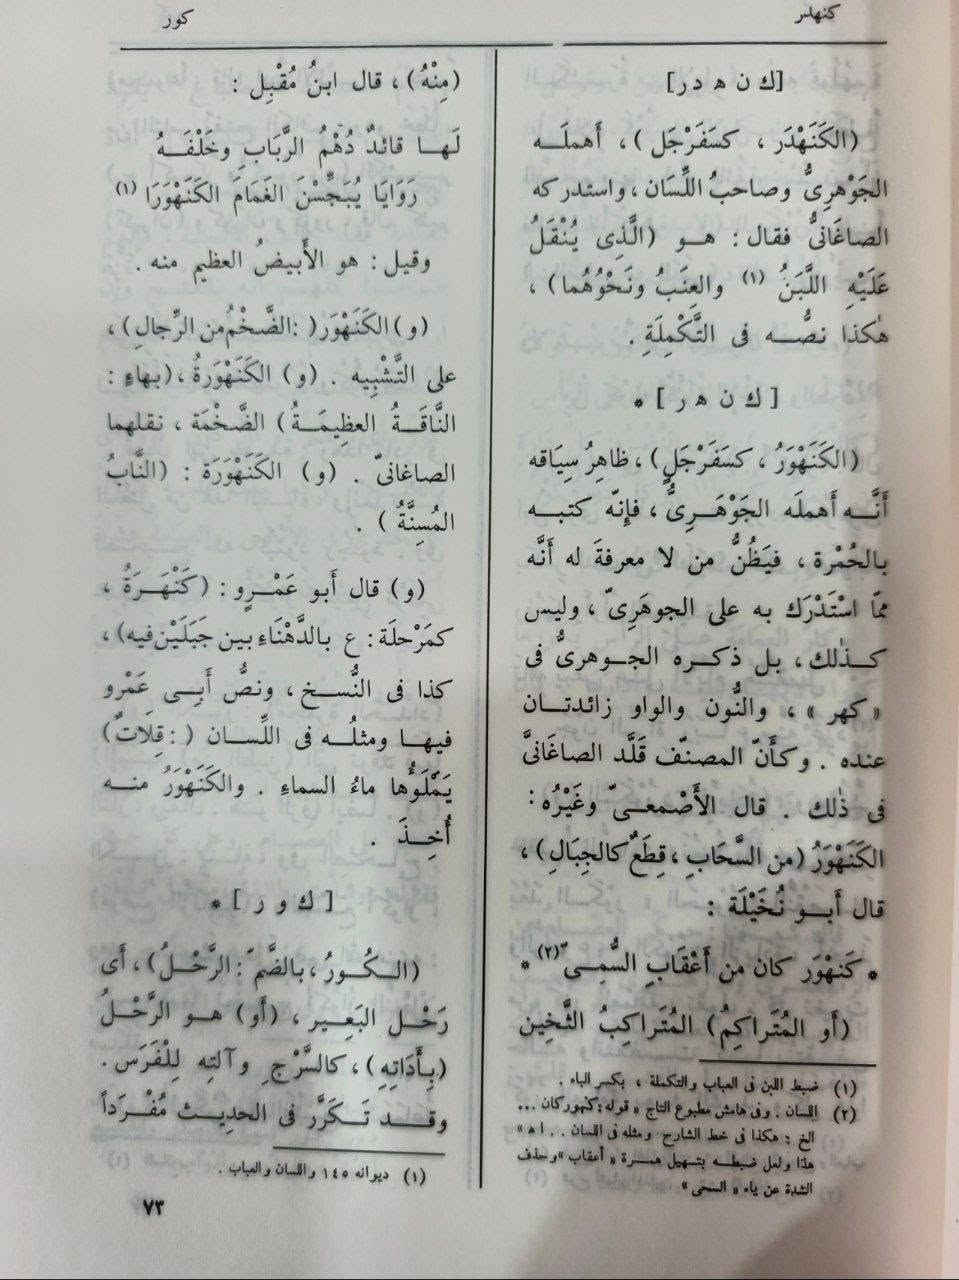 كنهدر
كور
[ ك ن ه د ر ]
(الكَنَهْدَر ، كسَفَرْجَل) ، أَهملَه
الجَوْهرىُّ وصاحبُ اللِّسَان ، واستدركه
الصاغَانىُّ فقال : هو (الَّذِى يُنْقَلُ
عَلَيْهِ اللَّبَنُ (١) والعِنَبُ ونَحْوُهُما) ،
هٰكذا نصُّه فى التَّكْمِلَةِ .
[ ك ن ه ر ] *
(الكَنَهْوَرُ ، كسَفَرْجَلٍ) ، ظاهِرُ سِيَاقه
أَنَّه أَهملَه الجَوْهَرِىُّ ، فإِنّه كتبه
بالحُمْرة ، فيَظُنُّ من لا معرفةَ له أَنَّه
ممّا اسْتَدْرَك به على الجوهَرِىّ ، وليس
كذٰلك ، بل ذكره الجوهرىُّ فى
« كهر » ، والنُّون والواو زائدتان
عنده . وكأَنّ المصنّف قَلَّد الصاغَانىَّ
فى ذٰلك . قال الأَصْمعىّ وغَيْرُه :
الكَنَهْوَرُ (من السَّحَابِ ، قِطَعٌ كالجِبَالِ) ،
قال أَبو نُخَيْلَة :
* كَنَهْوَر كان من أَعْقَابِ السُّمِىّ (٢) *
(أَو المُتَراكِمُ) المُتَراكِبُ الثَّخِين
(١) ضبط اللبن فى العباب والتكملة ، بكسر الباء .
(٢) اللسان . وفى هامش مطبوع التاج « قوله : كنهور كان ...
الخ : هكذا فى خط الشارح ومثله فى اللسان .. اه »
هذا ولعل ضبطه بتسهيل همزة « أعقاب » وحذف
الشدة عن ياء « السمى »
(مِنْهُ) ، قال ابنُ مُقْبِل :
لَها قائدٌ دُهْمُ الرَّبَابِ وخَلْفَهُ
رَوَايَا يُبَجِّسْنَ الغَمَامَ الكَنَهْوَرَا (١)
وقيل : هو الأَبيضُ العظيم منه .
(و) الكَنَهْوَر( :الضَّخْمُ من الرِّجالِ) ،
على التَّشْبِيه . (و) الكَنَهْوَرَةُ ، (بهاءٍ :
النَّاقَةُ العظِيمَةُ) الضَّخْمَة ، نقلهما
الصاغانىّ . (و) الكَنَهْوَرَة : (النَّابُ
المُسِنَّةُ) .
(و) قال أَبو عَمْرٍو : (كَنْهَرَةُ ،
كمَرْحلَة : ع بالدَّهْنَاءِ بين جَبَلَيْن فيه) ،
كذا فى النُّسخ ، ونصُّ أَبِى عَمْرو
فيها ومثلُه فى اللِّسان ( : قِلَاتٌ)
يَمْلَؤُها ماءُ السماءِ . والكَنَهْوَرُ منه
أُخِذَ .
[ ك و ر ] *
(الكُورُ ، بالضَّمّ : الرَّحْلُ) ، أَى
رَحْل البَعِير ، (أَو) هو الرَّحْلُ
(بِأَدَاتِهِ) ، كالسَّرْجِ وآلتِه لِلْفَرَس .
وقد تَكَرَّر فى الحديث مُفْرَدًا
(١) ديوانه ١٤٥ واللسان والعباب .
٧٣